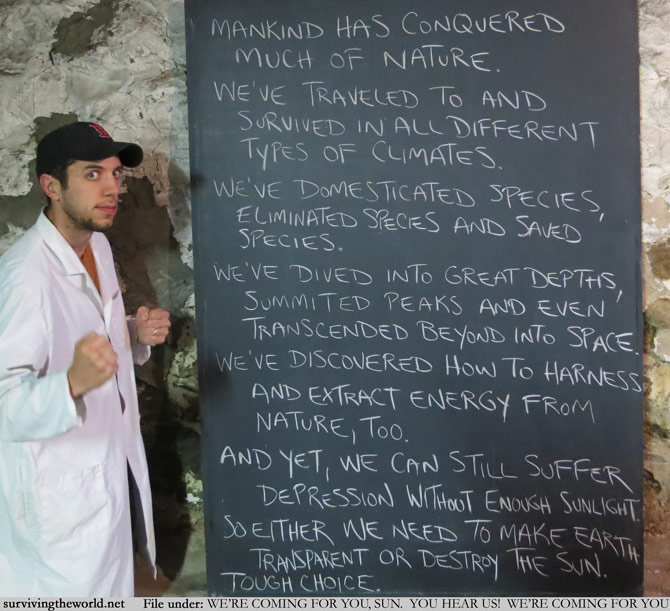 MANKIND HAS CONQUERED
MUCH OF NATURE.
WE'VE TRAVELED TO AND
SURVIVED IN ALL DIFFERENT
TYPES OF CLIMATES.
WE'VE DOMESTICATED SPECIES,
ELIMINATED SPECIES AND SAVED
SPECIES.
WE'VE DIVED INTO GREAT DEPTHS,
SUMMITED PEAKS AND EVEN
TRANSCENDED BEYOND INTO SPACE.
WE'VE DISCOVERED HOW TO HARNESS
AND EXTRACT ENERGY FROM
NATURE, TOO.
AND YET, WE CAN STILL SUFFER
DEPRESSION WITHOUT ENOUGH SUNLIGHT.
SO EITHER WE NEED TO MAKE EARTH
TRANSPARENT OR DESTROY THE SUN.
TOUGH CHOICE.
survivingtheworld.net File under: WE'RE COMING FOR YOU, SUN. YOU HEAR US! WE'RE COMING FOR YOU